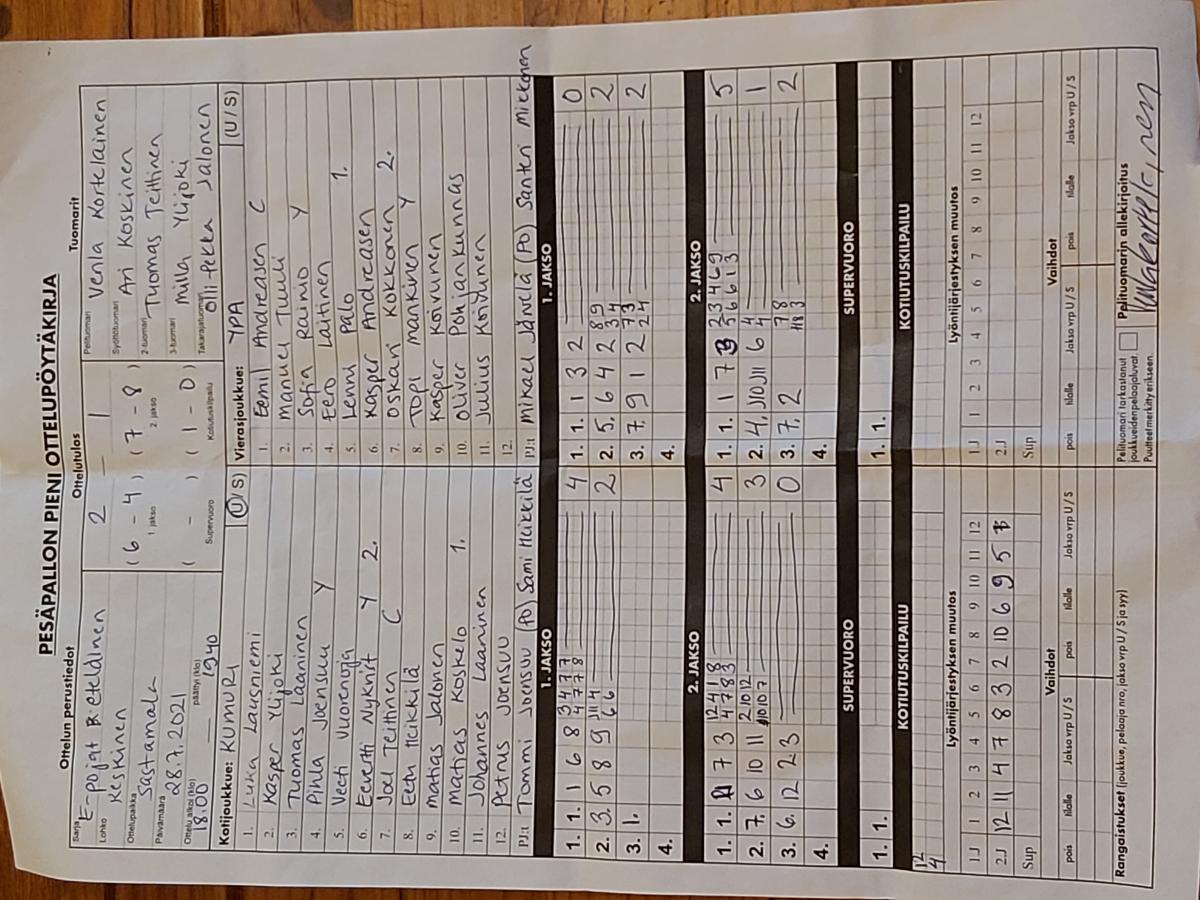 PESÄPALLON PIENI OTTELUPÖYTÄKIRJA
Ottelun perustiedot
Ottelutulos
Tuomarit
Sarja
E-pojat B. Eteläinen
Lohko
Keskinen
Ottelupaikka
Sastamala
Päivämäärä
28.7.2021
Ottelu alkoi (klo)
18.00
päättyi (klo)
1940
2 – 1
(6 – 4) (7 – 8)
1. jakso 2. jakso
( – ) (1 – 0)
Supervuoro Kotiutuskilpailu
Pelituomari
Venla Kortelainen
Syöttötuomari
Ari Koskinen
2-tuomari
Tuomas Teittinen
3-tuomari
Milla Ylijoki
Takarajatuomari
Olli-Pekka Jalonen
Kotijoukkue: KUMURI (U/S)
1. Luka Lausniemi
2. Kasper Ylijoki
3. Tuomas Laaninen
4. Pihla Joensuu Y
5. Veeti Vuorenoja
6. Eevertti Nyknist Y 2.
7. Joel Teittinen C
8. Eetu Heikkilä
9. Matias Jalonen
10. Matias Koskelo 1.
11. Johannes Laaninen
12. Petrus Joensuu
PJ:t Tommi Joensuu (PO) Sami Heikkilä
Vierasjoukkue: YPA (U/S)
1. Eemil Andreasen C
2. Manuel Tuuli
3. Sofia Raimo Y
4. Eero Laitinen
5. Lenni Palo 1.
6. Kasper Andreasen
7. Oskari Kokkonen 2.
8. Topi Mankinen Y
9. Kasper Koivunen
10. Oliver Pohjankunnas
11. Julius Koivunen
12.
PJ:t Mikael Järvelä (PO) Santeri Mickonen
1. JAKSO
1. JAKSO
1. 1. 1 6 8 3 4 7 7 4
4 7 7 8
2. 3. 5 8 9 11 4 2
6 6
3. 1.
4.
1. 1. 1 3 2 0
2. 5. 6 4 2 8 9 2
3 4
3. 7. 9 1 2 7 3 2
2 4
4.
2. JAKSO
2. JAKSO
1. 1. 7 3 12 4 1 8 4
4 7 8 3
2. 7. 6 10 11 2 10 12 3
10 10 7
3. 6. 12 2 3 0
4.
1. 1. 1 7 3 2 3 4 6 9 5
3 6 6 1 3
2. 4. 6 4 1
4
3. 7. 2 7 8 2
3
4.
SUPERVUORO
SUPERVUORO
1. 1.
1. 1.
KOTIUTUSKILPAILU
KOTIUTUSKILPAILU
12
4
Lyöntijärjestyksen muutos
Lyöntijärjestyksen muutos
1 2 3 4 5 6 7 8 9 10 11 12
1.J
2.J 12 11 4 7 8 3 2 10 6 9 5 1
Sup
1 2 3 4 5 6 7 8 9 10 11 12
1.J
2.J
Sup
Vaihdot
Vaihdot
pois tilalle Jakso vrp U / S pois tilalle Jakso vrp U / S
pois tilalle Jakso vrp U / S pois tilalle Jakso vrp U / S
Rangaistukset (joukkue, pelaaja nro, jakso vrp U / S ja syy)
Pelituomari tarkastanut
joukkueidenpelaajaluvat
Puutteet merkitty erikseen.
Pelituomarin allekirjoitus